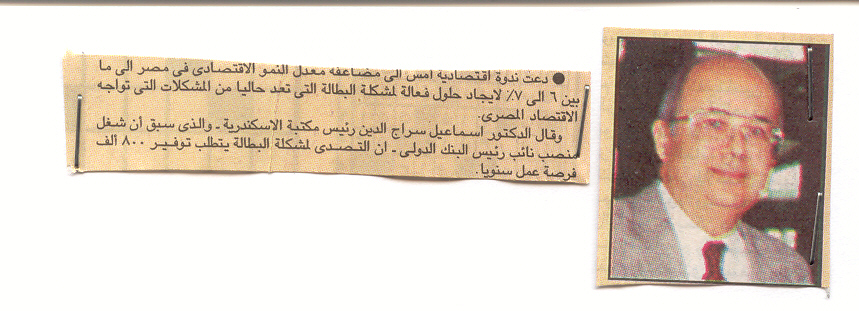 ● دعت ندوة اقتصادية امس الى مضاعفة معدل النمو الاقتصادى فى مصر الى ما
بين ٦ الى ٧٪ لايجاد حلول فعالة لمشكلة البطالة التى تعد حاليا من المشكلات التى تواجه
الاقتصاد المصرى.
وقال الدكتور اسماعيل سراج الدين رئيس مكتبة الاسكندرية ـ والذى سبق أن شغل
منصب نائب رئيس البنك الدولى ـ ان التصدى لمشكلة البطالة يتطلب توفير ٨٠٠ ألف
فرصة عمل سنويا.